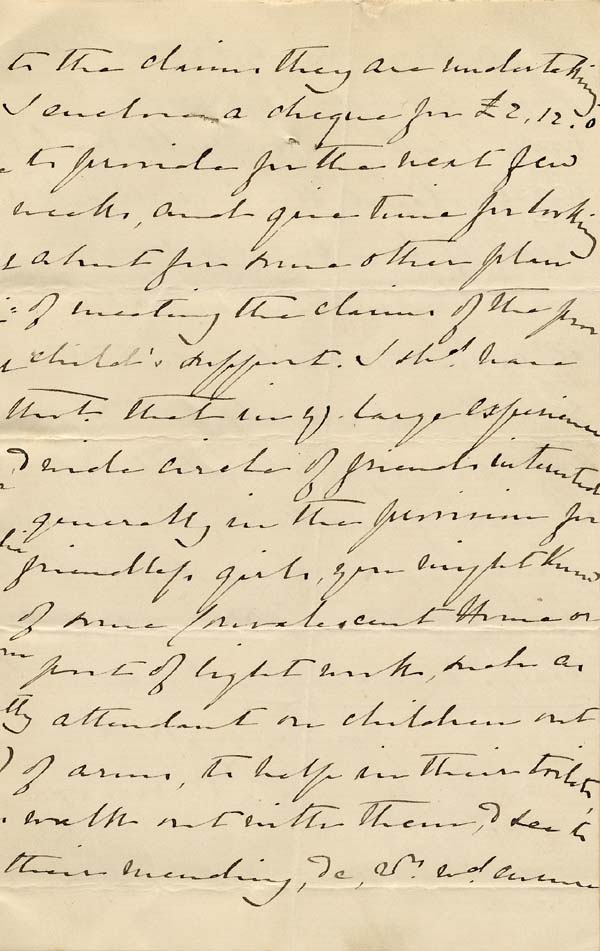 to the claims they are undertaking
I enclose a cheque for £2.12.0
to provide for the next few
weeks, and give time for looking
about for some other plan
of meeting the claims of the poor
child's support. I shd. have
thot. that in yr. large experience
& wide circle of friends interested
generally in the provision for
friendless girls, you might know
of some Convalescent Home or
post of light work, such as
attendant on children out
of arms, to help in their toilets,
walk out with them, & see to
their mending, &c, wd.